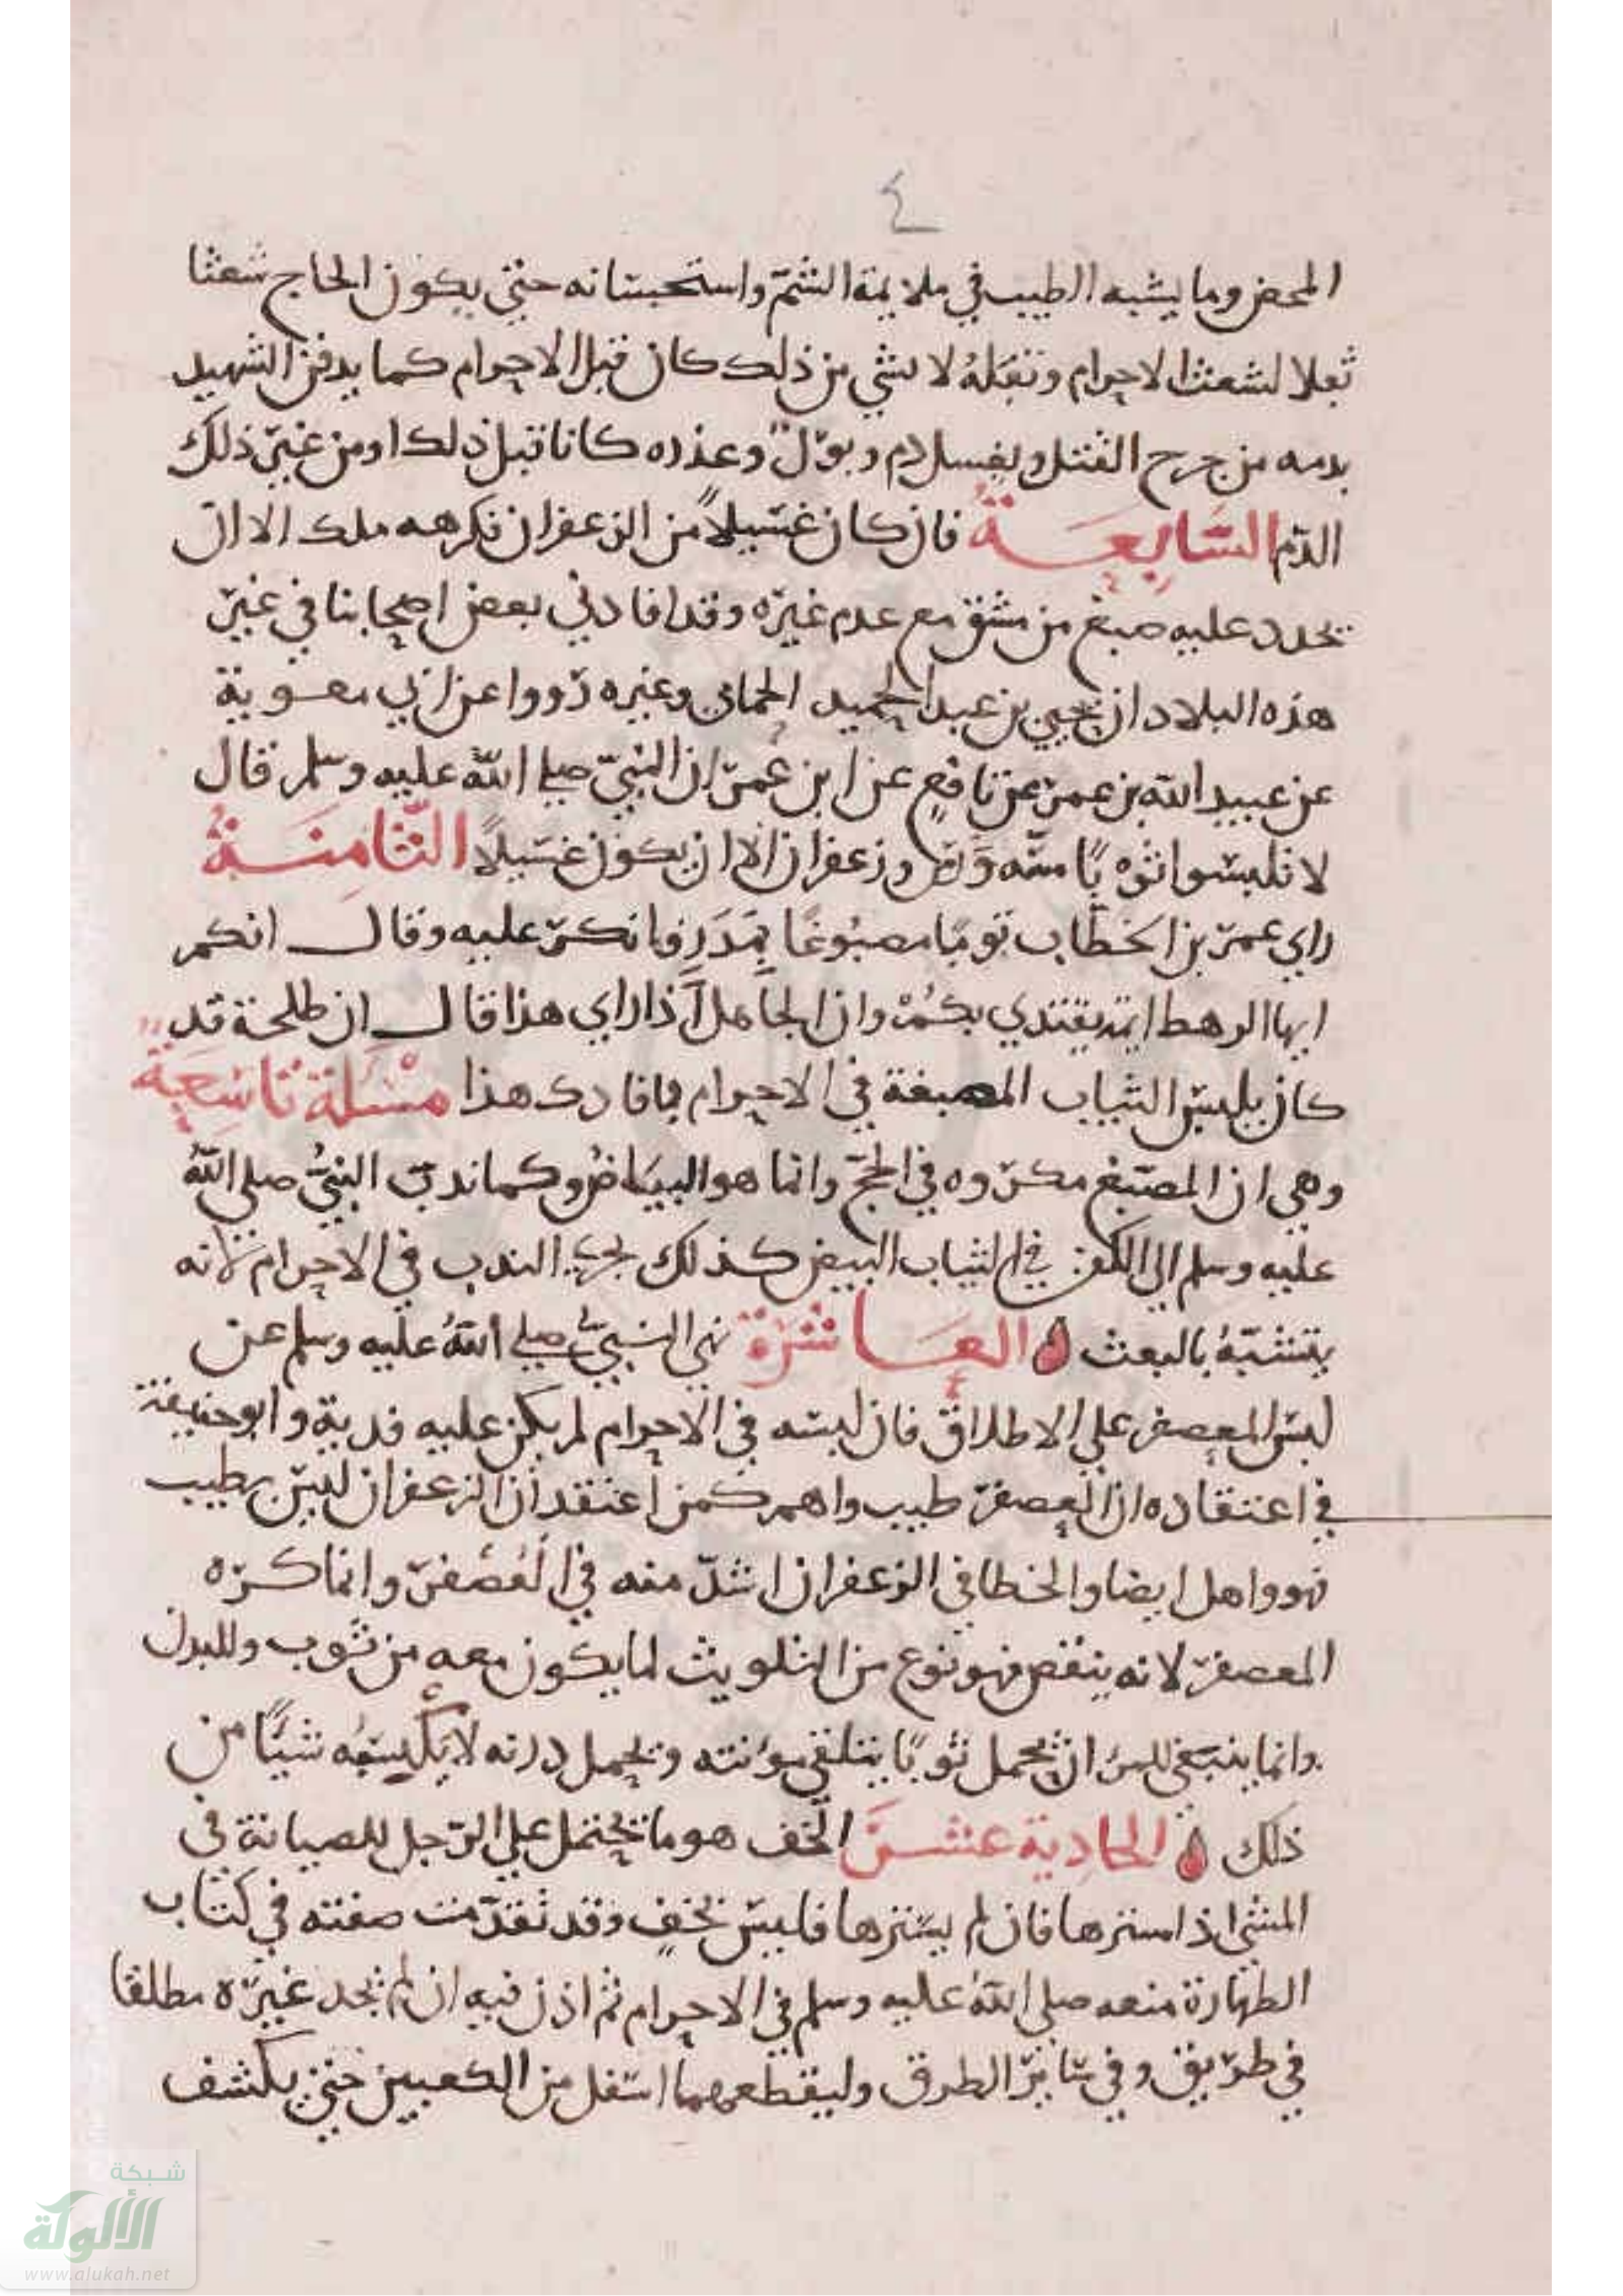 ٤
المحض وما يشبه الطيب في ملايمة الشم واستحسانه حتي يكون الحاج شعثا
ثفلا لشعث الاحرام وتفله لا لشي من ذلك كان قبل الاحرام كما يدفن الشهيد
بدمه من جرح القتل ويغسل دم وبول وعذره كانا قبل ذلك او من غير ذلك
الدم السابعة فان كان غسيلا من الزعفران فكرهه ملك الا ان
يجدد عليه صبغ من مشق مع عدم غيره وقد افادني بعض اصحابنا في غير
هذه البلاد ان يحيي بن عبد الحميد الحماني وغيره رووا عن ابي معوية
عن عبيد الله بن عمر عن نافع عن ابن عمر ان النبي صلي الله عليه وسلم قال
لا تلبسوا ثوبا مسه ورس وزعفران الا ان يكون غسيلا الثامنة
راي عمر بن الخطاب ثوبا مصبوغا بمدر فانكر عليه وقال انكم
ايها الرهط ايمة يقتدي بكم وان الجاهل اذا راي هذا قال ان طلحة قد
كان يلبس الثياب المصبغة في الاحرام فافادك هذا مسئلة تاسعة
وهي ان المصبغ مكروه في الحج وانما هو البياض وكما ندب النبي صلى الله
عليه وسلم الي الكفن في الثياب البيض كذلك يجري الندب في الاحرام لانه
يتشبه بالبعث العاشرة نهي النبي صلي الله عليه وسلم عن
لبس المعصفر علي الاطلاق فان لبسه في الاحرام لم يكن عليه فدية وابو حنيفة
في اعتقاده ان العصفر طيب واهم كمن اعتقد ان الزعفران ليس بطيب
فهو واهل ايضا والخطا في الزعفران اشد منه في العصفر وانما كره
المعصفر لانه ينفض فهو نوع من التلويث لما يكون معه من ثوب وللبدن
وانما ينبغي للمرء ان يحمل ثوبا يتلقي مؤنته ويحمل درنه لا يكسبه شيا من
ذلك الحادية عشر الخف هو ما يحتمل علي الرجل للصيانة في
المشي اذا سترها فان لم يسترها فليس بخف وقد تقدمت صفته في كتاب
الطهارة منعه صلى الله عليه وسلم في الاحرام ثم اذن فيه ان لم يجد غيره مطلقا
في طريق وفي ساير الطرق وليقطعهما اسفل من الكعبين حتي يكشف
شبكة
الألوكة
www.alukah.net